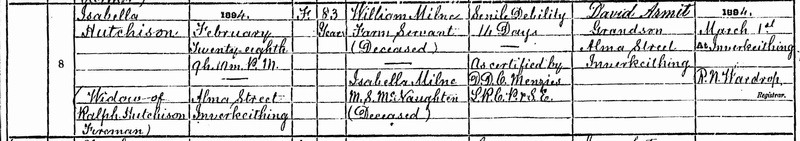 8
Isabella
Hutchison
(Widow of
Ralph Hutchison
Fireman)
1894.
February
Twenty-eighth
9h. 10m. P.M.
Alma Street
Inverkeithing
F
83
Years
William Milne
Farm Servant
(Deceased)
Isabella Milne
M.S. McNaughton
(Deceased)
Senile Debility
14 Days
As certified by
D.D.C. Menzies
L.R.C.P. & S.E.
David Asmit
Grandson
Alma Street
Inverkeithing
1894.
March 1st
At Inverkeithing
R.N. Wardrop
Registrar.